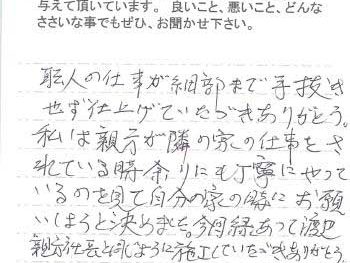 与えて頂いています。良いこと、悪いこと、どんな
ささいな事でもぜひ、お聞かせ下さい。
職人の仕事が細部まで手抜き
せず仕上げていただきありがとう。
私は親方が隣の家の仕事をさ
れている時余りにも丁寧にやって
いるのを見て自分の家の時にお願
いしようと決めました。今回縁あって渡辺
親方社長と同じように施工していただきありがとう。